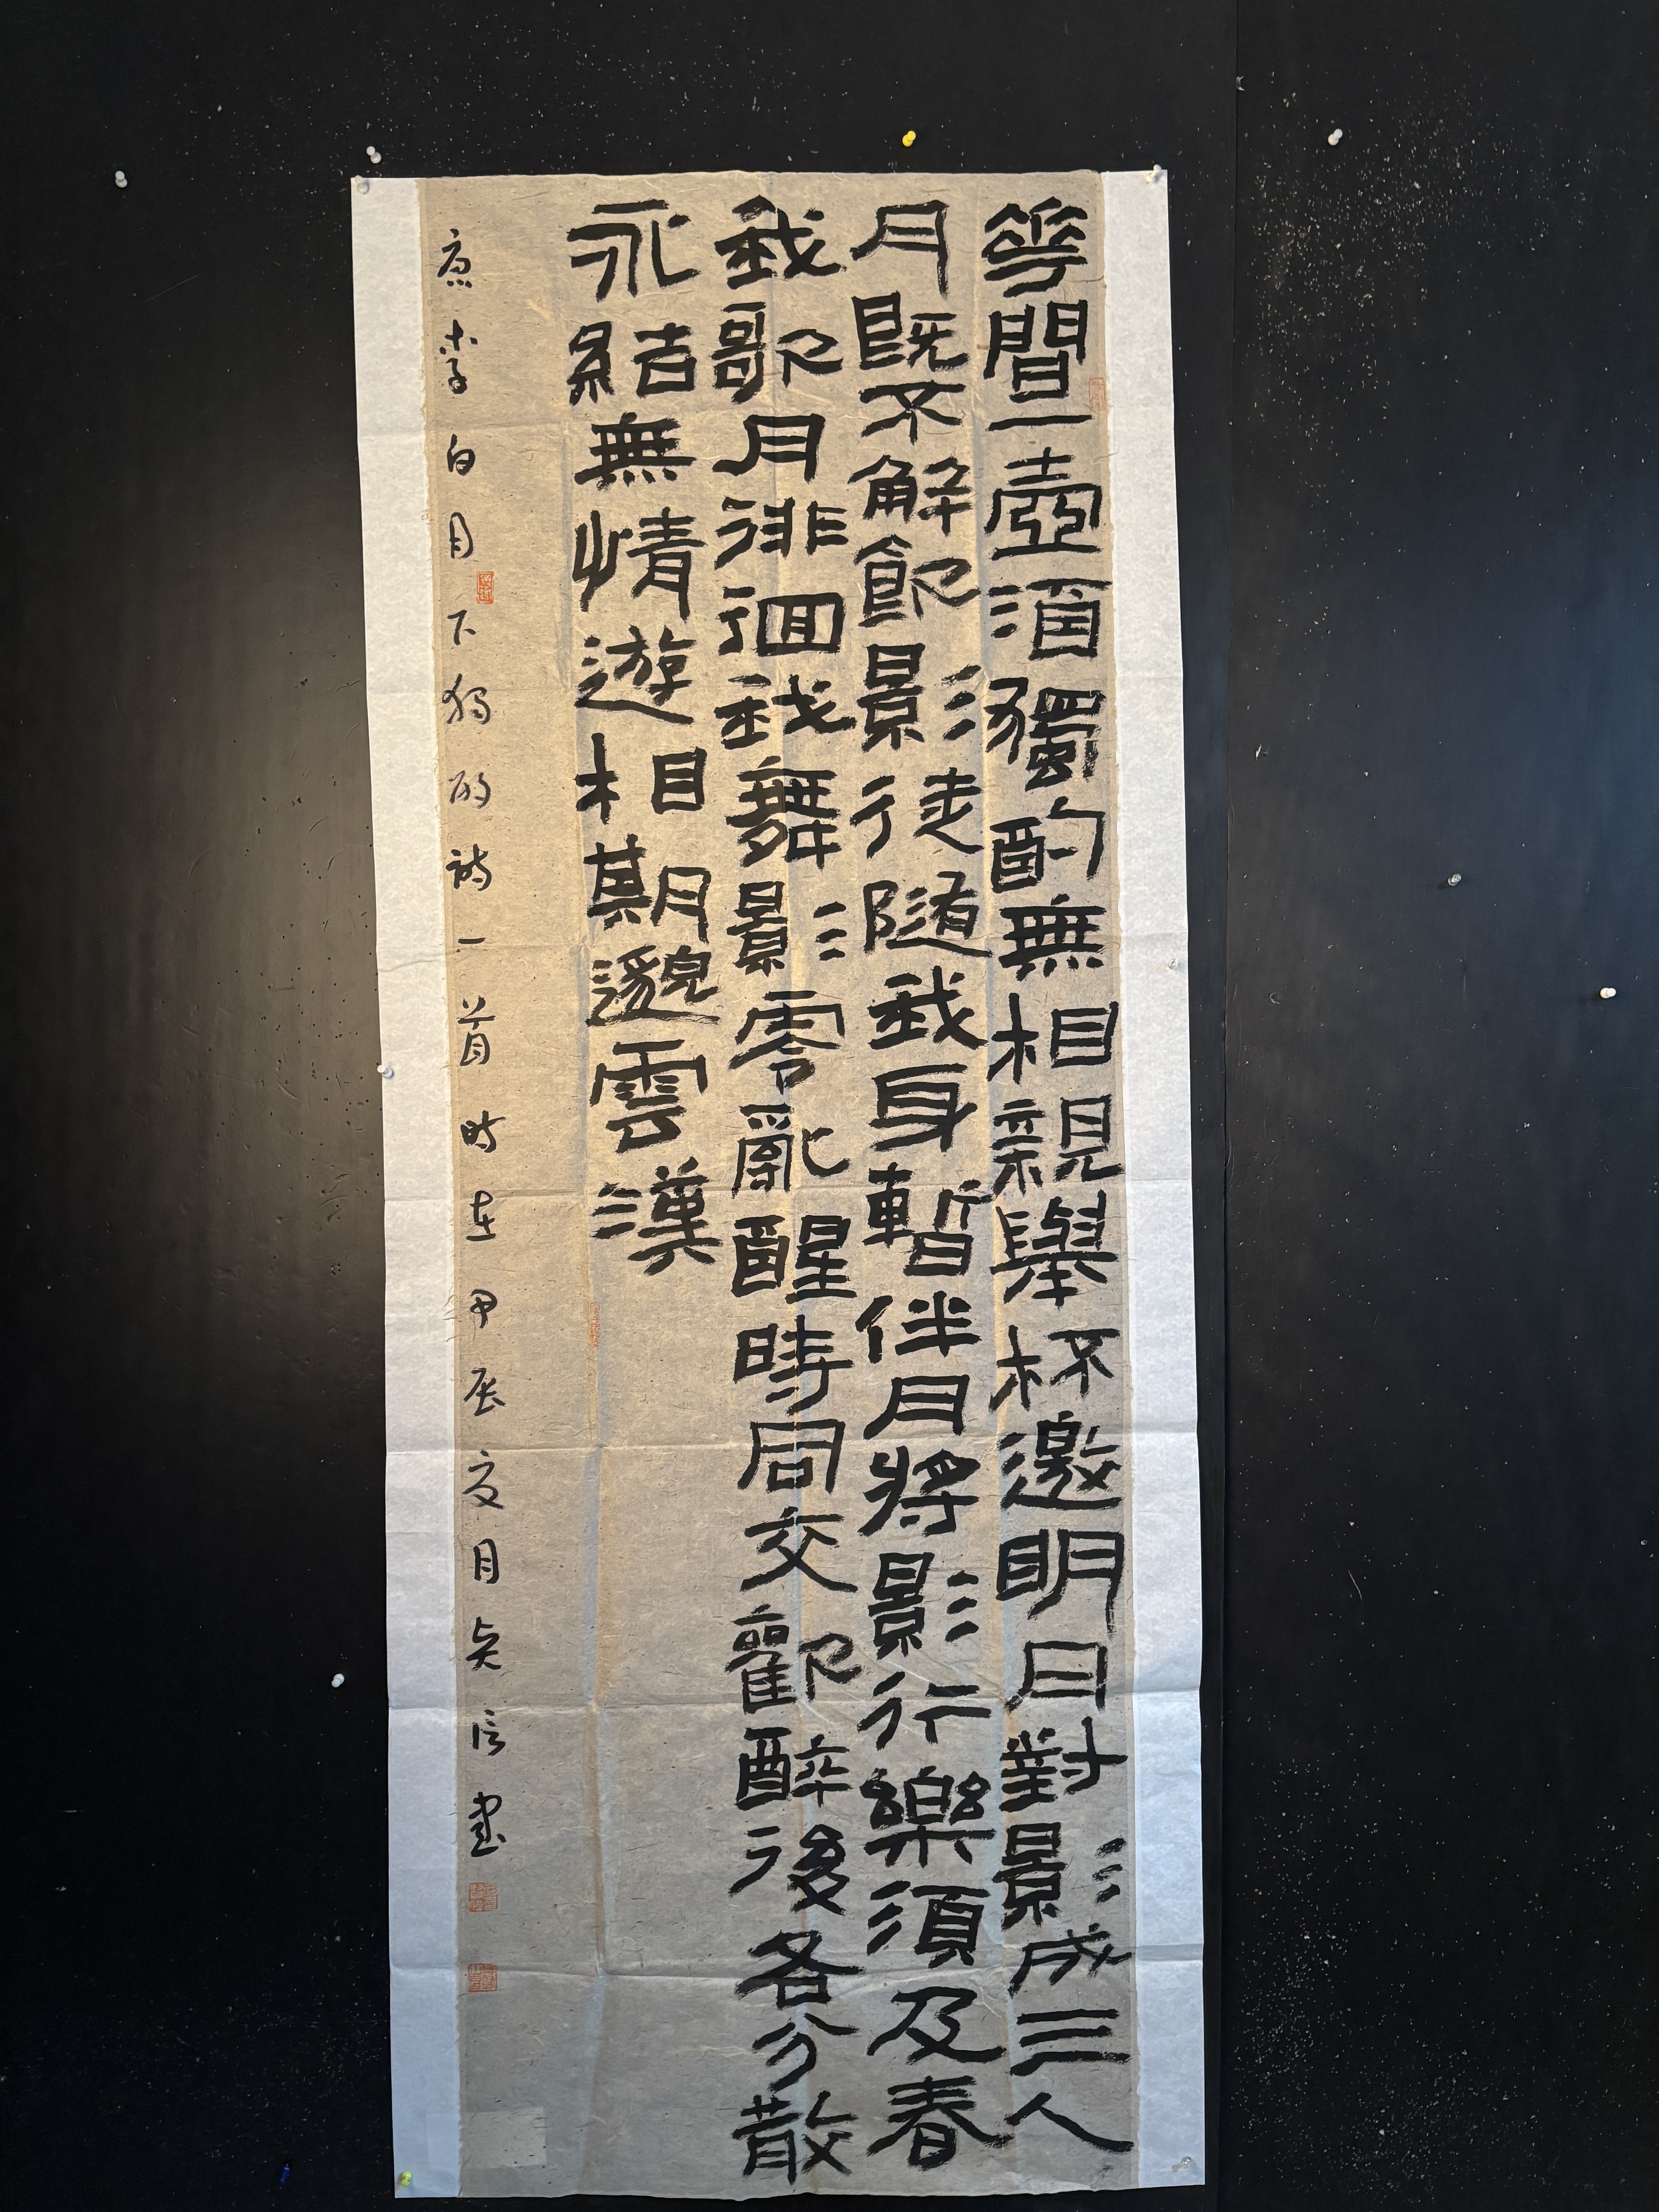 華間一壺酒獨酌無相親舉杯邀明月對影成三人
月既不解飲影徒隨我身暫伴月將影行樂須及春
我歌月徘徊我舞影零亂醒時同交歡醉後各分散
永結無情遊相期邈雲漢
唐李白月下獨酌詩一首時在甲辰夏月